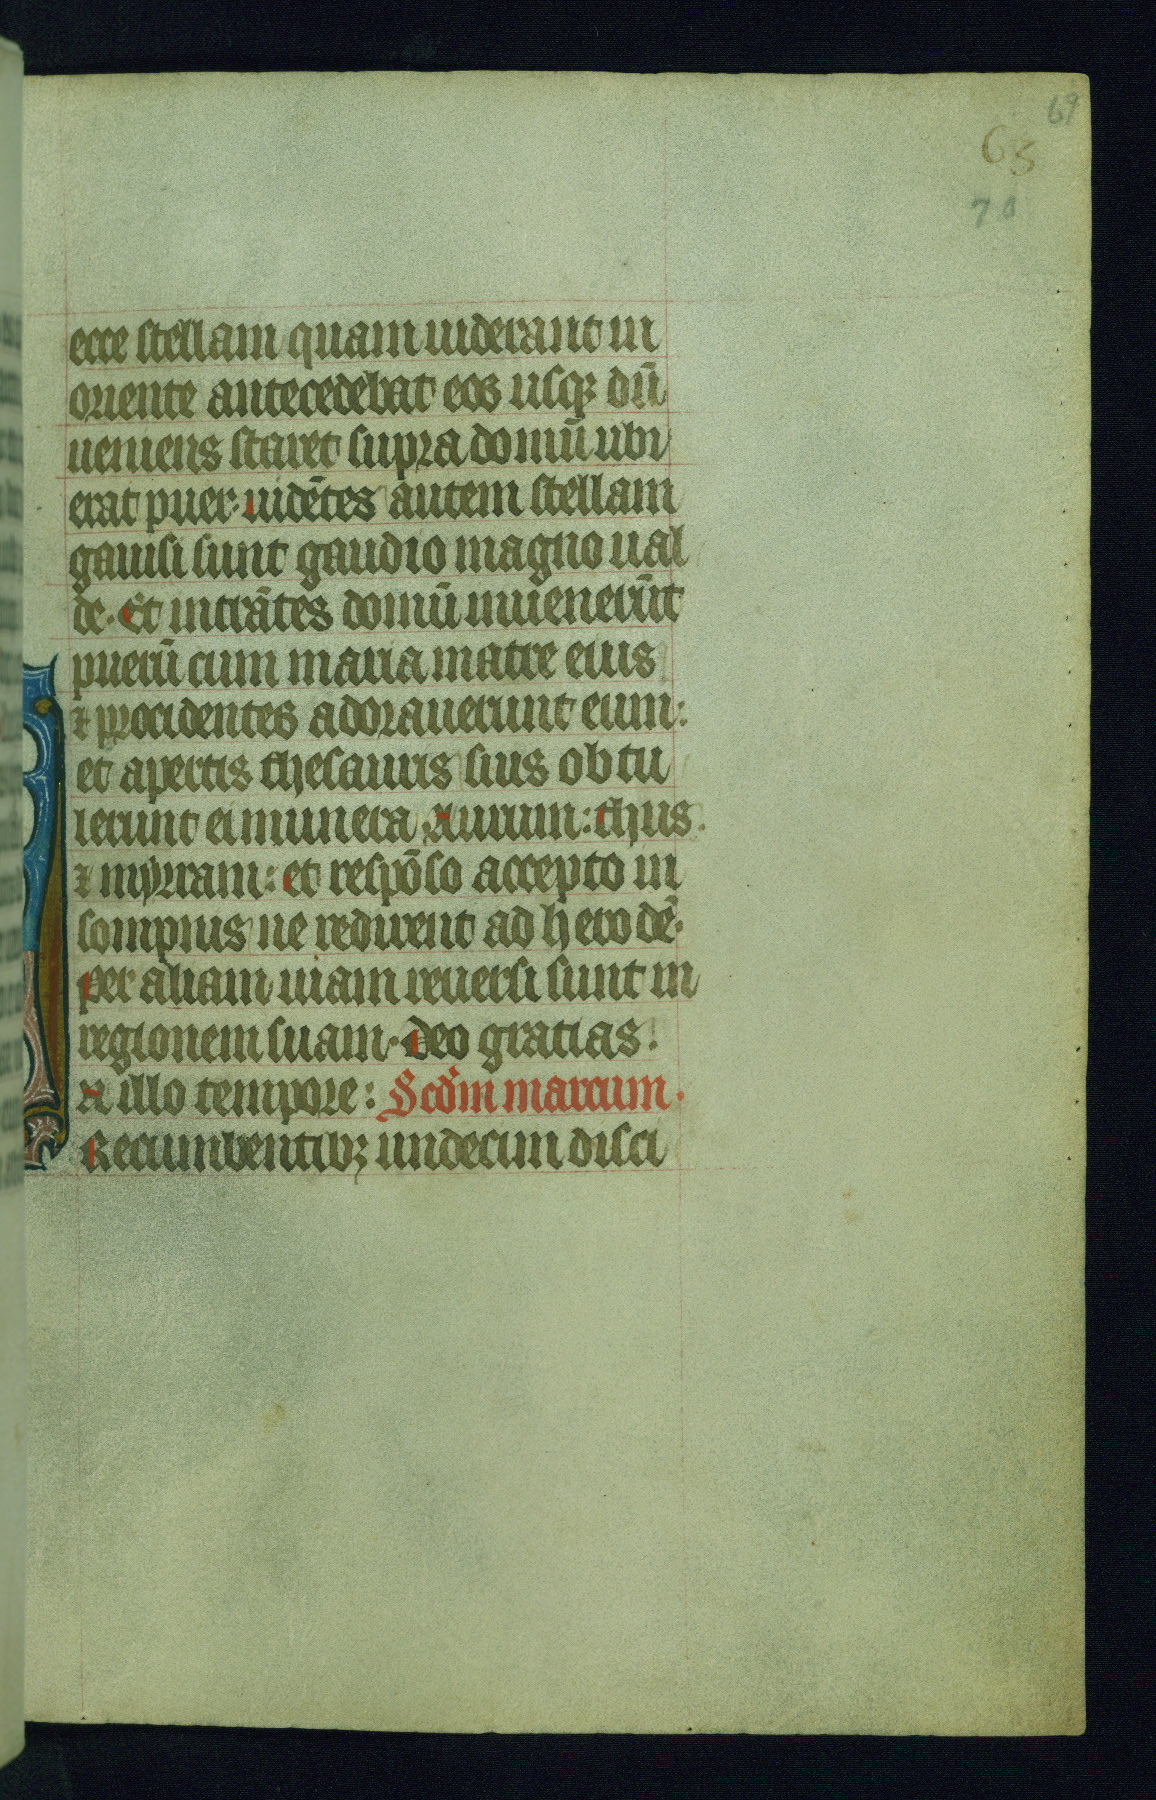 69
63
70
ecce stellam quam uiderant in
oriente antecedebat eos usqꝫ dū
ueniens staret supra domū ubi
erat puer· uidētes autem stellam
gauisi sunt gaudio magno ual
de· Et intrātes domū inuenerūt
puerū cum maria matre eius
⁊ procidentes adorauerunt eum:
et apertis thesauris suis obtu
lerunt ei munera Aurum: thus
⁊ myrram: et respōso accepto in
sompnis ne redirent ad herodē·
per aliam uiam reuersi sunt in
regionem suam· deo gratias·
N illo tempore: Scdm̄ marcum·
Recumbentibꝫ undecim disci